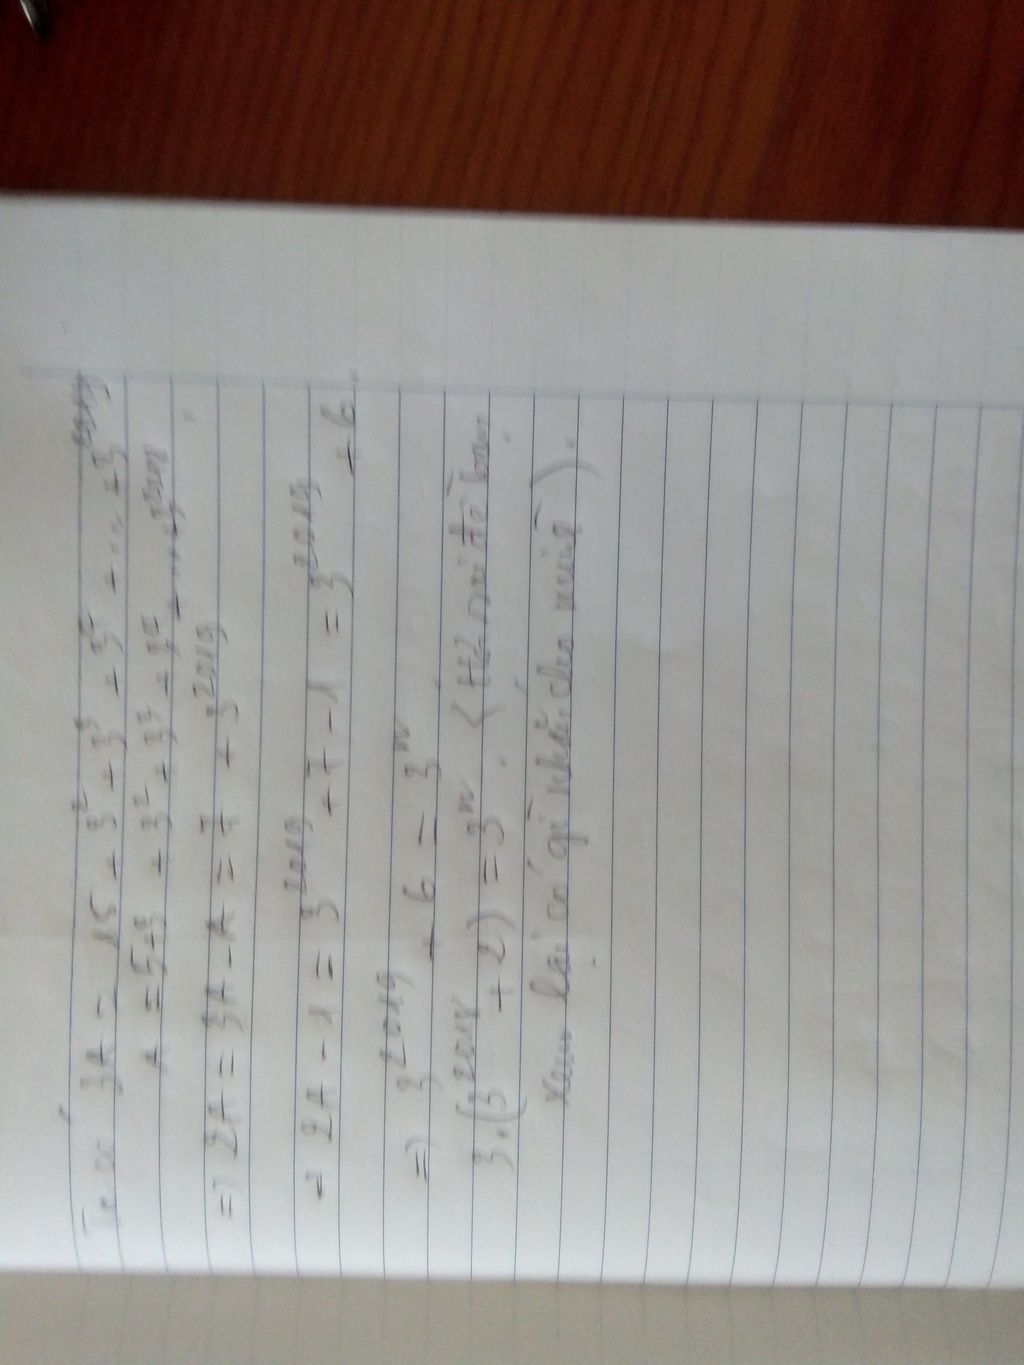 Ta có 3A = 15 + 3² + 3³ + 3⁴ + ... + 3²⁰¹⁹
A = 5 + 3 + 3² + 3³ + 3⁴ + ... + 3²⁰¹⁸
=> 2A = 3A - A = 7 + 3²⁰¹⁹
=> 2A - 1 = 3²⁰¹⁹ + 7 - 1 = 3²⁰¹⁹ + 6
=> 3²⁰¹⁹ + 6 = 3ⁿ
3.(3²⁰¹⁸ + 2) = 3ⁿ. ( đề
xem lại có gì nhắn cho mình ).